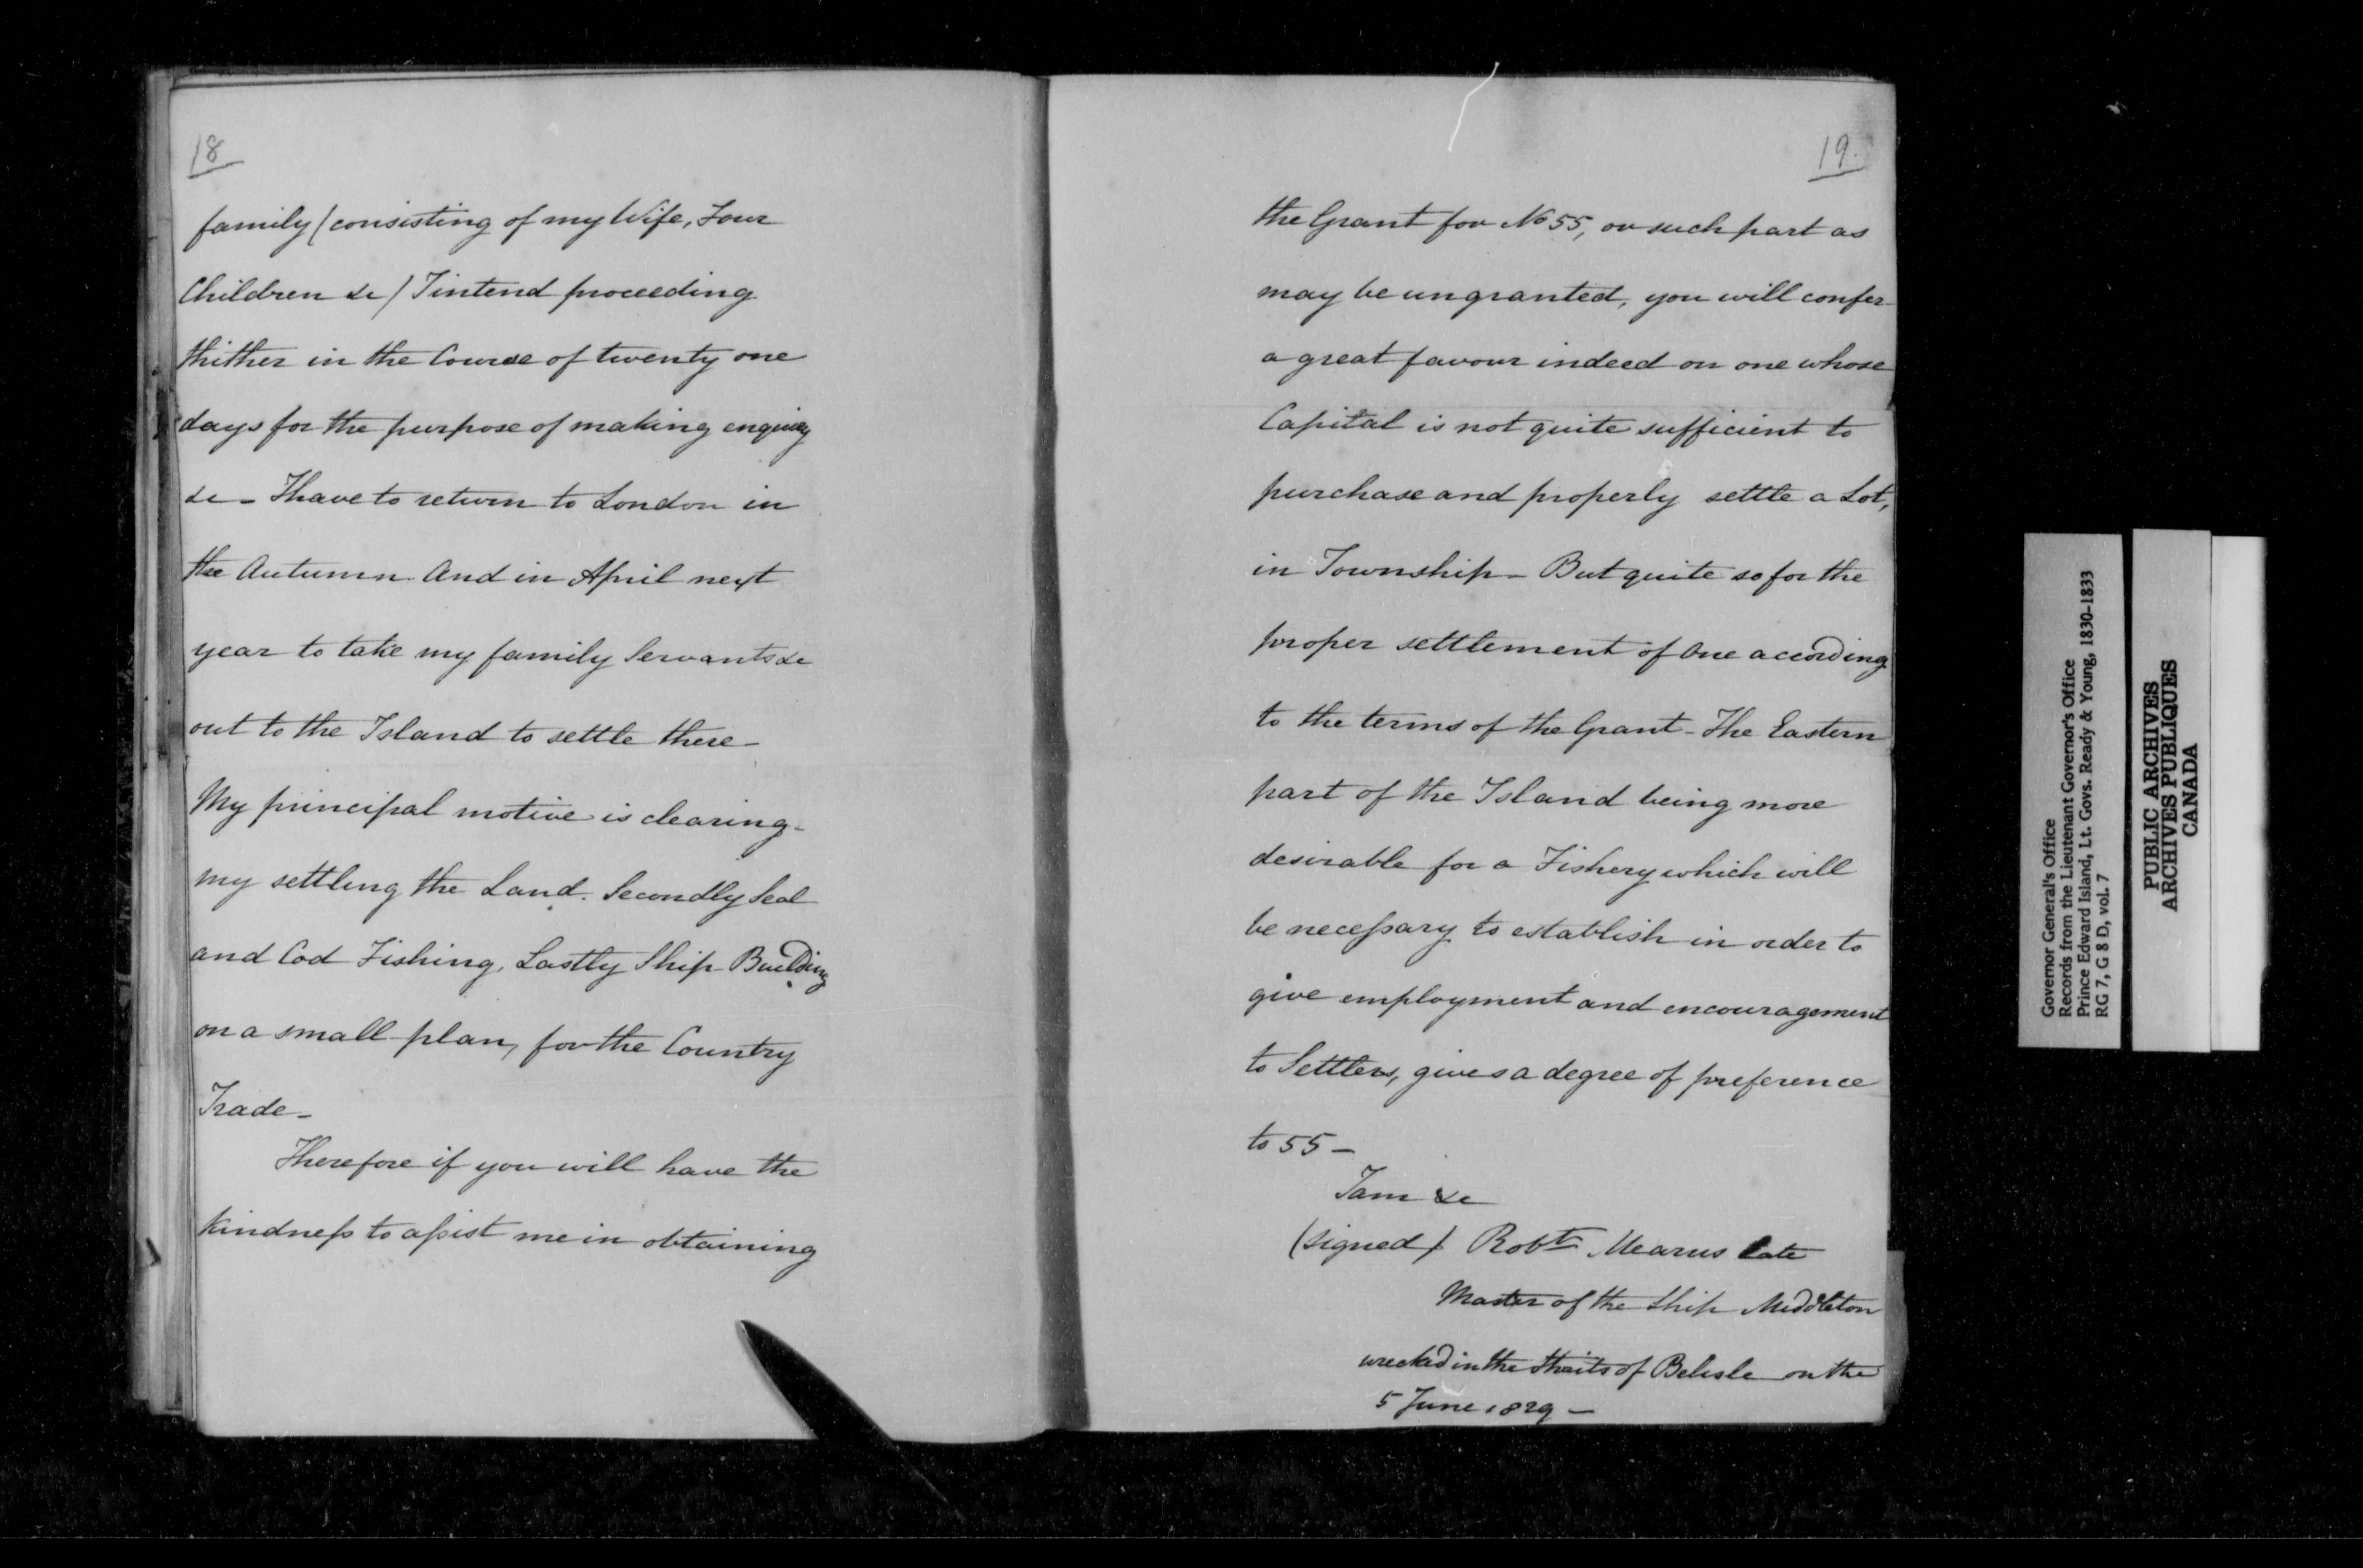 18
family (consisting of my Wife, Four
Children &c) I intend proceeding
thither in the Course of twenty one
days for the purpose of making enquiry
&c - I have to return to London in
the Autumn And in April next
year to take my family Servants &c
out to the Island to settle there -
My principal motive is clearing -
my settling the Land. Secondly Seal
and Cod Fishing, Lastly Ship Building
on a small plan, for the Country
Trade -
Therefore if you will have the
kindness to assist me in obtaining
19.
the Grant for No 55, or such part as
may be ungranted, you will confer
a great favour indeed on one whose
Capital is not quite sufficient to
purchase and properly settle a Lot,
in Township - But quite so for the
proper settlement of One according
to the terms of the Grant - The Eastern
part of the Island being more
desirable for a Fishery which will
be necessary to establish in order to
give employment and encouragement
to Settlers, gives a degree of preference
to 55 -
I am &c
(signed) Robt Mearns late
Master of the Ship Middleton
wrecked in the Straits of Belisle on the
5 June 1829 -
Governor General's Office
Records from the Lieutenant Governor's Office
Prince Edward Island, Lt. Govs. Ready & Young, 1830-1833
RG 7, G 8 D, vol. 7
PUBLIC ARCHIVES
ARCHIVES PUBLIQUES
CANADA